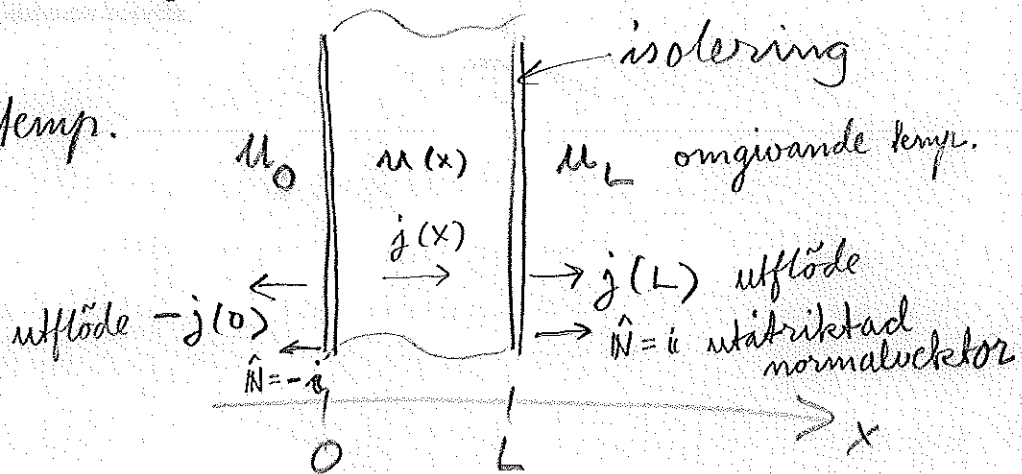 isolering
temp.
u₀ u(x) u_L omgivande temp.
j(x)
utflöde -j(0) j(L) utflöde
N̂ = -i N̂ = i utåtriktad
normalvektor
0 L x